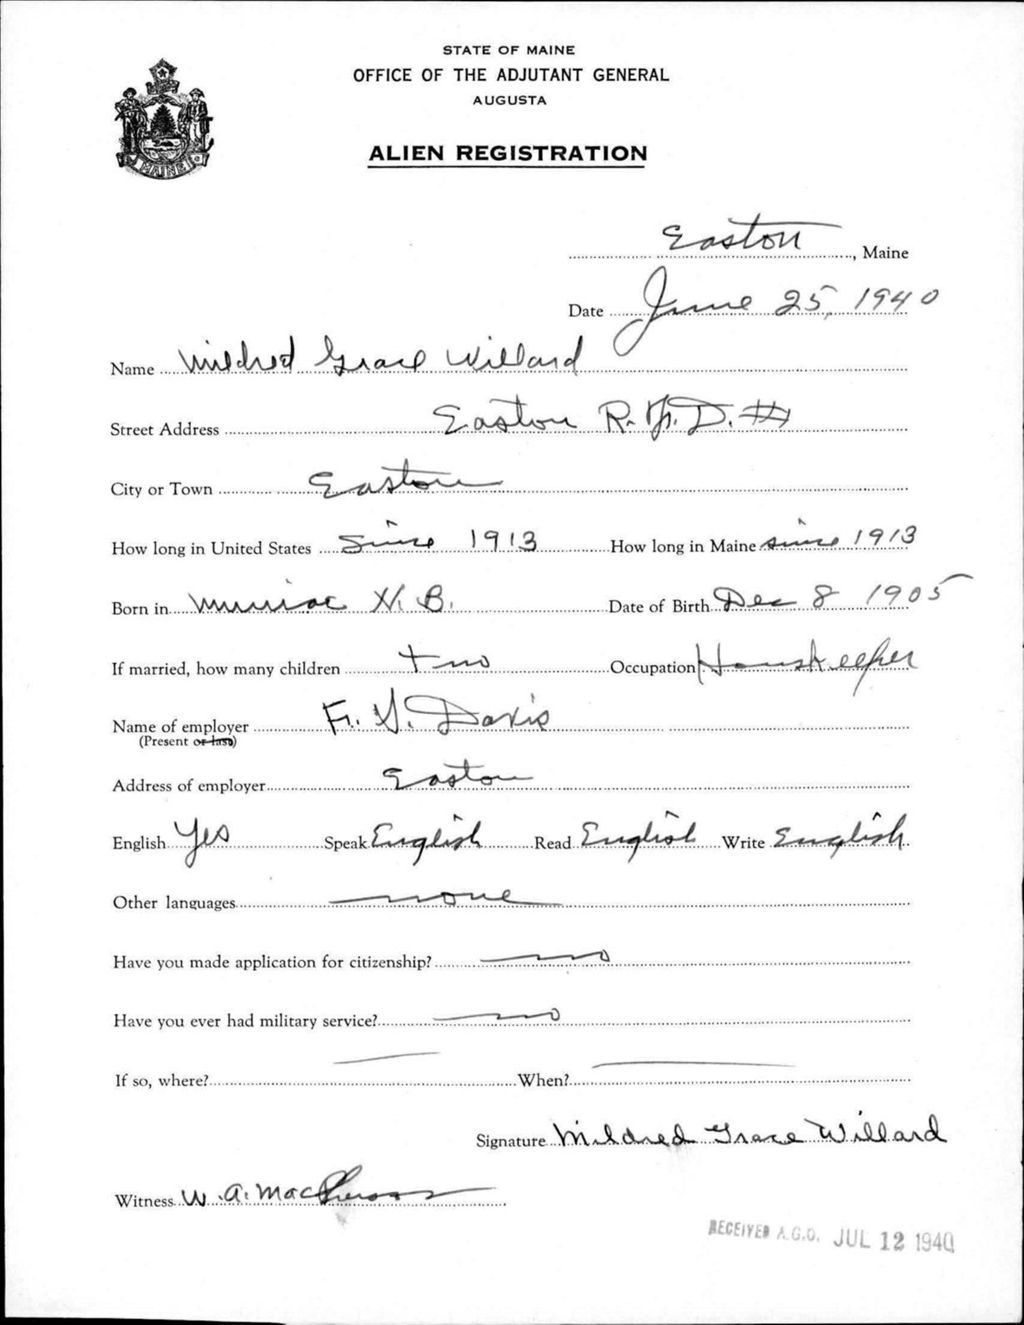 STATE OF MAINE
OFFICE OF THE ADJUTANT GENERAL
AUGUSTA
ALIEN REGISTRATION
MAINE
Easton, Maine
Date June 25, 1940
Name Mildred Grace Willard
Street Address Easton R. F. D. #1
City or Town Easton
How long in United States Since 1913 How long in Maine since 1913
Born in Muniac N. B. Date of Birth Dec 8 1905
If married, how many children two Occupation Housekeeper
Name of employer F. G. Davis
(Present or last)
Address of employer Easton
English Yes Speak English Read English Write English
Other languages none
Have you made application for citizenship? no
Have you ever had military service? no
If so, where? When?
Signature Mildred Grace Willard
Witness W. A. MacPherson
RECEIVED A.G.O. JUL 12 1940